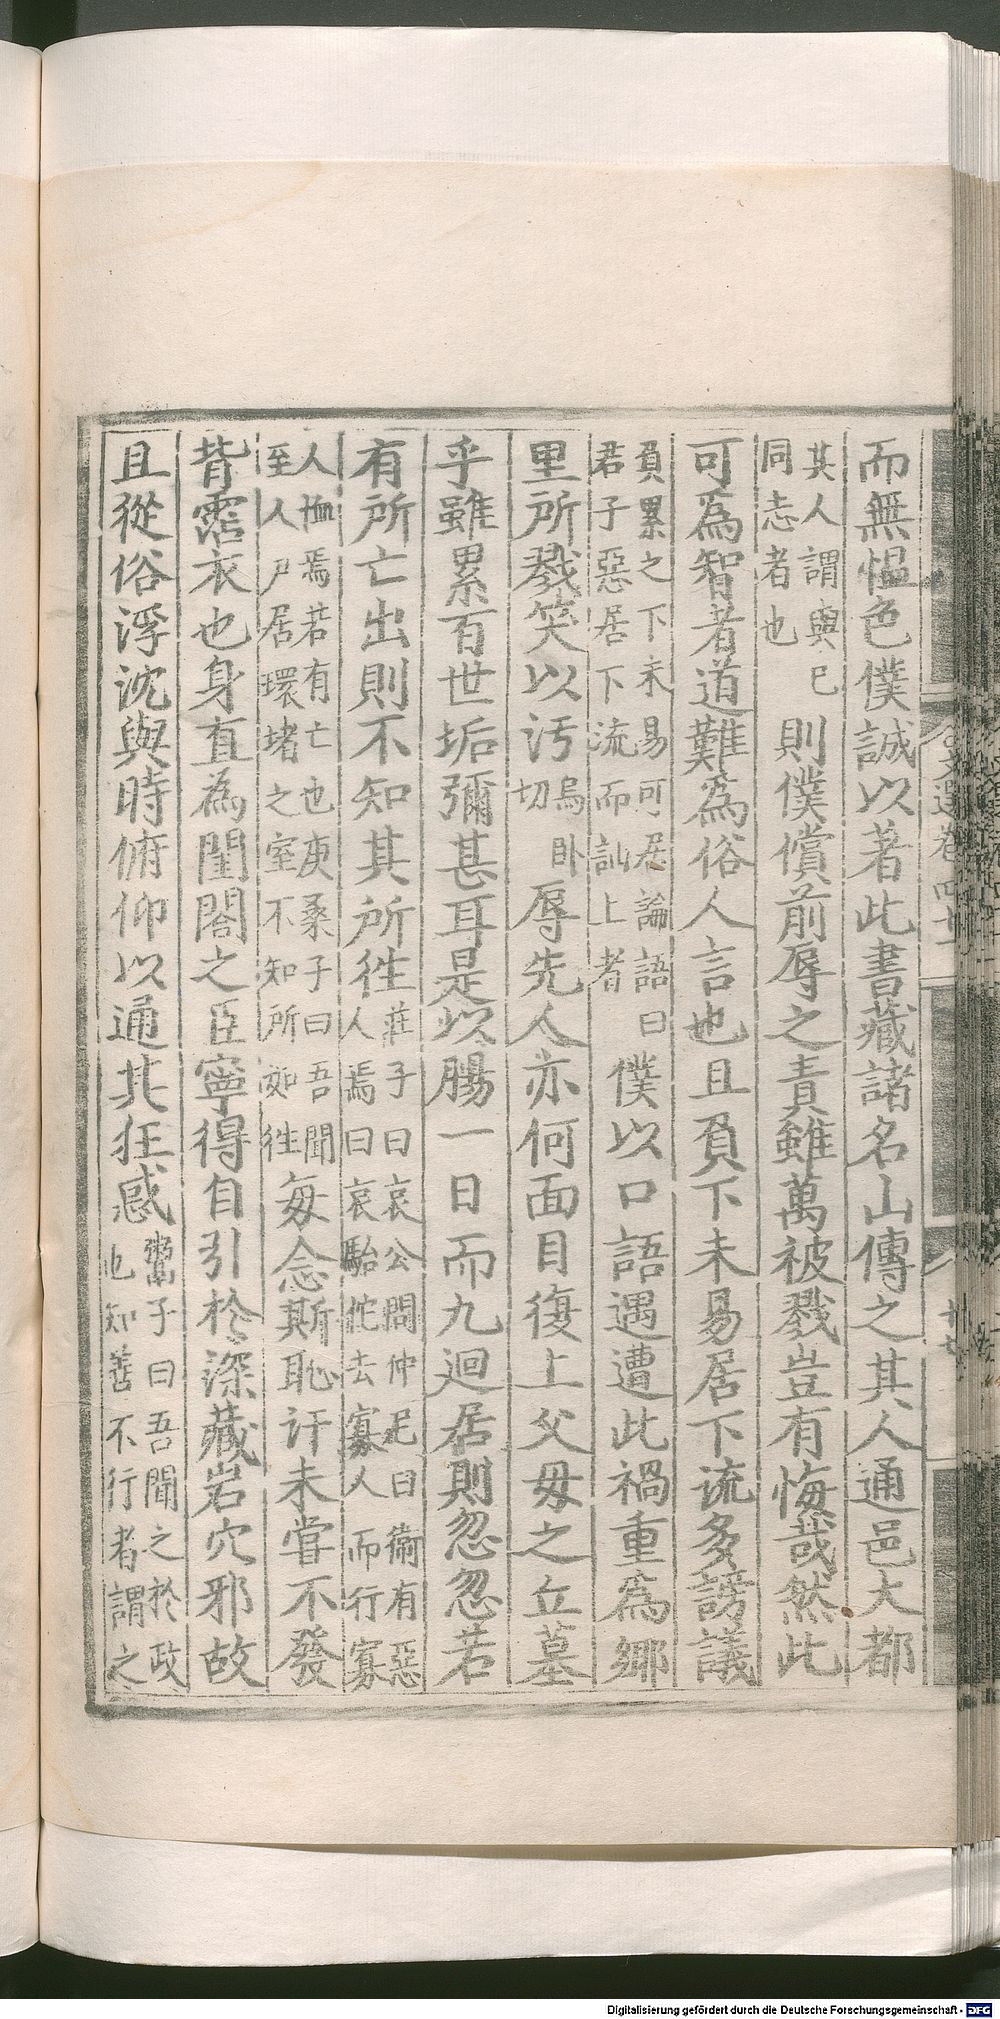 而無慍色僕誠以著此書藏諸名山傳之其人通邑大都
其人謂與已
同志者也
則僕償前辱之責雖萬被戮豈有悔哉然此
可爲智者道難爲俗人言也且負下未易居下流多謗議
負累之下未易可居論語曰
君子惡居下流而訕上者
僕以口語遇遭此禍重爲鄉
里所戮笑以汚
烏卧
切
辱先人亦何面目復上父母之丘墓
乎雖累百世垢彌甚耳是以腸一日而九迴居則忽忽若
有所亡出則不知其所徃
莊子曰哀公問仲尼曰衞有惡
人焉曰哀駘佗去寡人而行寡
人恤焉若有亡也庚桑子曰吾聞
至人尸居環堵之室不知所如徃
每念斯恥汗未甞不發
背霑衣也身直為閨閤之臣寧得自引於深藏岩穴邪故
且從俗浮沈與時俯仰以通其狂惑
鬻子曰吾聞之於政
也知善不行者謂之
文選卷四十一
廿七
Digitalisierung gefördert durch die Deutsche Forschungsgemeinschaft - DFG